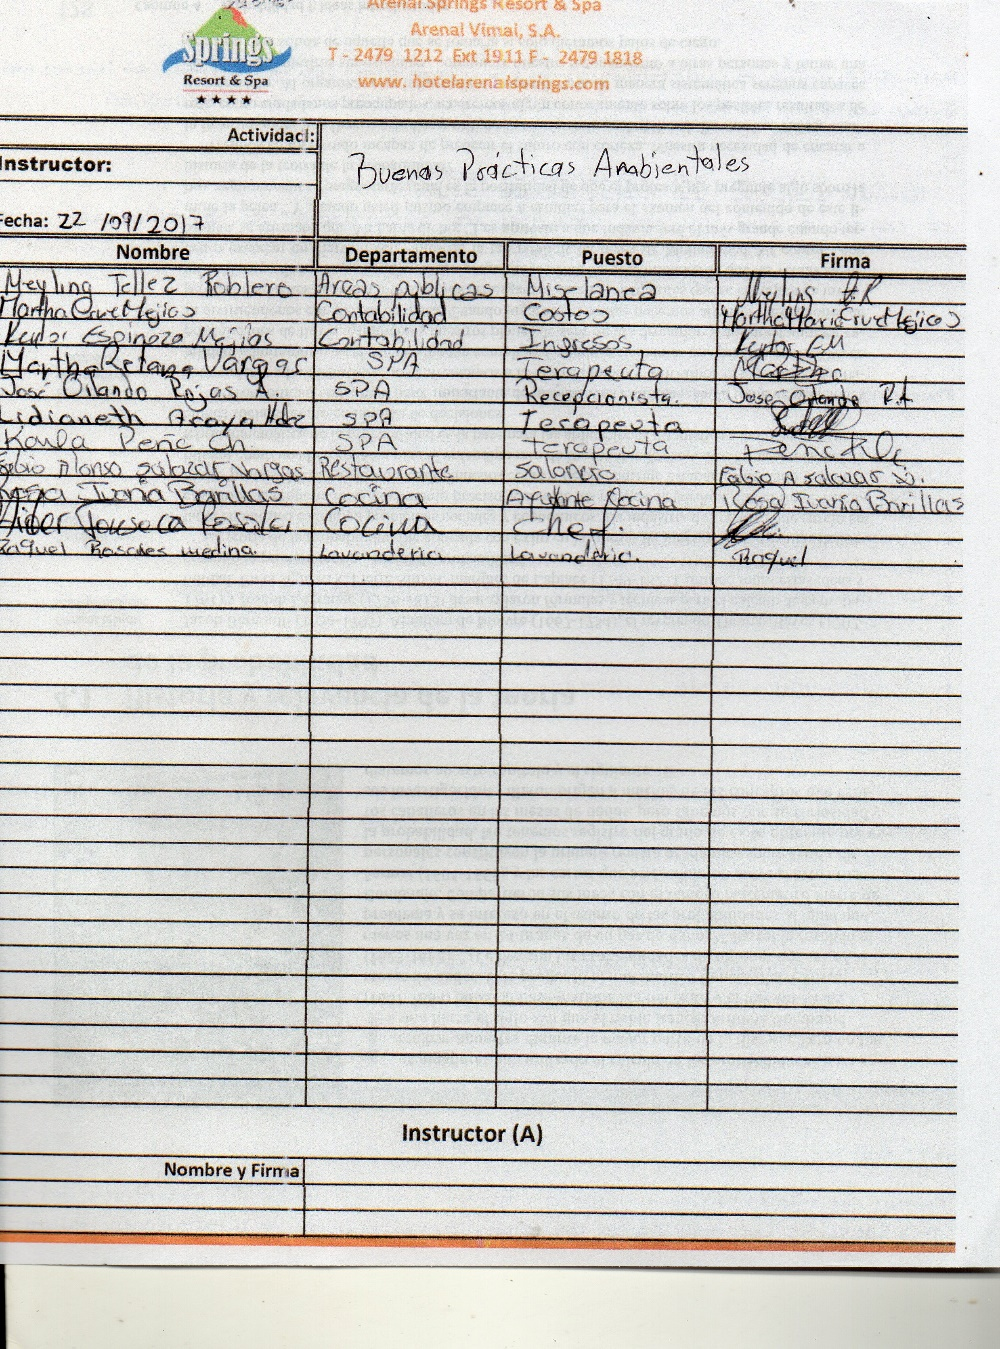 Arenal Springs Resort & Spa
Arenal Vimal, S.A.
T - 2479 1212 Ext 1911 F - 2479 1818
www.hotelarenalsprings.com
Springs
Resort & Spa
Actividad:
Instructor:
Buenas Prácticas Ambientales
Fecha: 22 /09/2017
Nombre Departamento Puesto Firma
Meyling Tellez Roblero Areas públicas Miselanea Meyling
Martha Cruz Mejios Contabilidad Costos Martha Maria Cruz Mejios
Espinoza Mejios Contabilidad Ingresos
Martha Retana Vargas SPA Terapeuta Martha
José Orlando Rojas A. SPA Recepcionista. José Orlando R.A
Lidianeth Araya Hdez SPA Terapeuta
Karla Peña Ch. SPA Terapeuta
Fabio Alonso Salazar Vargas Restaurante Salonero Fabio A Salazar V.
Rosa Ivania Barillas Cocina Ayudante Cocina Rosa Ivania Barillas
Fonseca Rosales Cocina Chef.
Raquel Rosales medina. Lavanderia Lavanderia. Raquel
Instructor (A)
Nombre y Firma